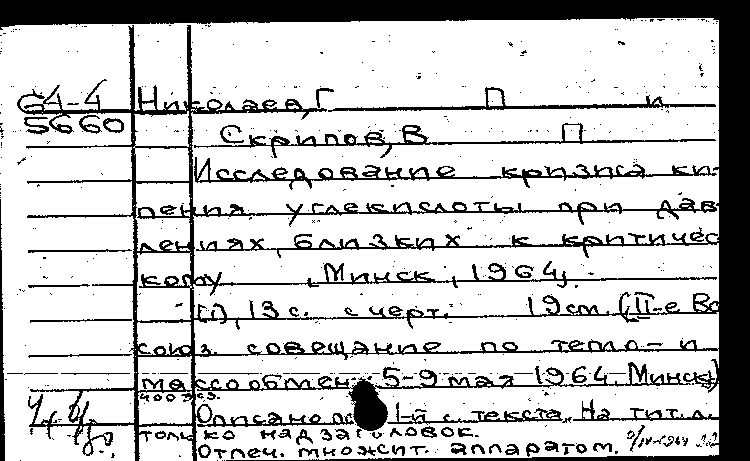 64-4 Николаева, Г П и
5660 Скрипов, В П
Исследование кризиса ки-
пения углекислоты при дав-
лениях, близких к критичес
кому. Минск, 1964.
[1], 13 с. с черт. 19 см. (II-е Вс
союз. совещание по тепло- и
массообмену 5-9 мая 1964. Минск)
400 экз.
Описано по 1-й с. текста. На тит. л.
только надзаголовок.
Отпеч. множит. аппаратом.